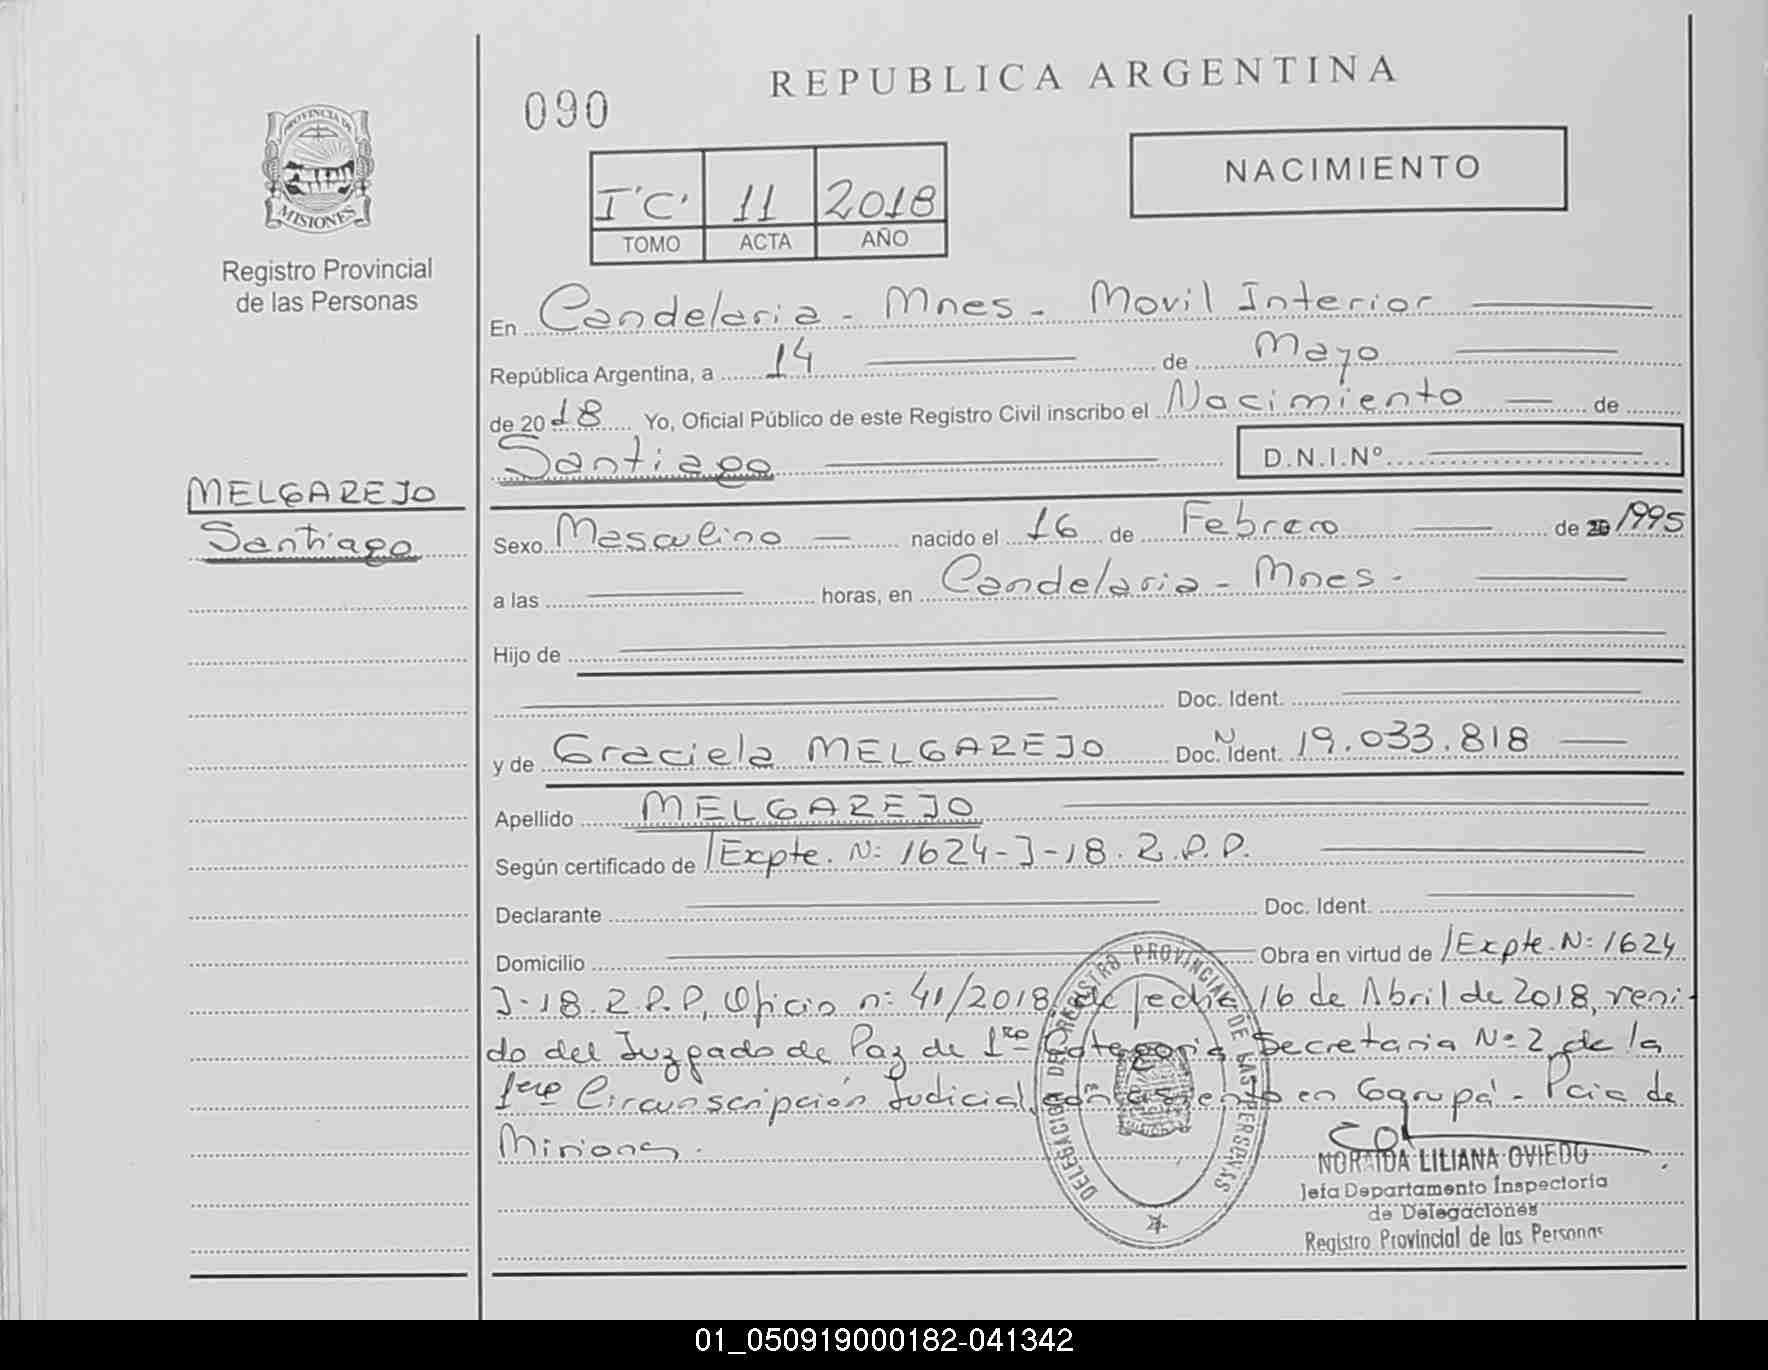 REPUBLICA ARGENTINA
090
NACIMIENTO
PROVINCIA DE
MISIONES
Registro Provincial
de las Personas
I"C" 11 2018
TOMO ACTA AÑO
En Candelaria - Mnes - Movil Interior
República Argentina, a 14 de Mayo
de 2018 Yo, Oficial Público de este Registro Civil inscribo el Nacimiento de
Santiago D.N.I.Nº
MELGAREJO
Santiago
Sexo Masculino nacido el 16 de Febrero de 1995
a las horas, en Candelaria - Mnes -
Hijo de
Doc. Ident.
y de Graciela MELGAREJO Doc. N Ident. 19.033.818
Apellido MELGAREJO
Según certificado de /Expte. Nº 1624-J-18. R.P.P.
Declarante Doc. Ident.
Domicilio Obra en virtud de /Expte. Nº 1624
J-18. R.P.P, Oficio nº 41/2018, de fecha 16 de Abril de 2018, reni-
do del Juzgado de Paz de 1ra Categoria Secretaria Nº 2, de la
1era Circunscripción Judicial, con asiento en Garupá - Pcia de
Misiones.
DELEGACION DEL REGISTRO PROVINCIAL DE LAS PERSONAS
NORAIDA LILIANA OVIEDO
Jefa Departamento Inspectoría
de Delegaciones
Registro Provincial de las Personas
01_050919000182-041342